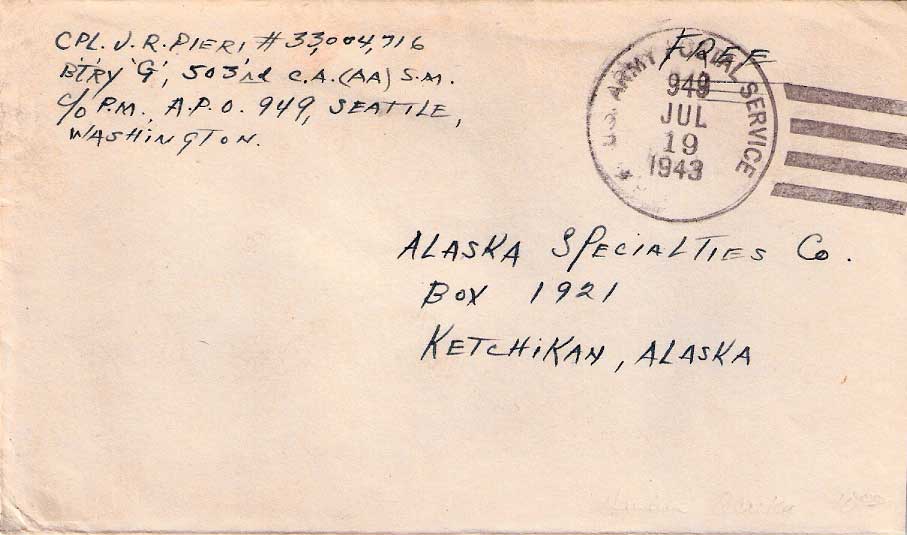 CPL. J. R. PIERI # 33,004,716
BTRY "G", 503rd C.A. (AA) S.M.
c/o P.M., A.P.O. 949, SEATTLE,
WASHINGTON.
FREE
U.S. ARMY POSTAL SERVICE
949
JUL
19
1943
ALASKA SPECIALTIES Co.
BOX 1921
KETCHIKAN, ALASKA
Alaska